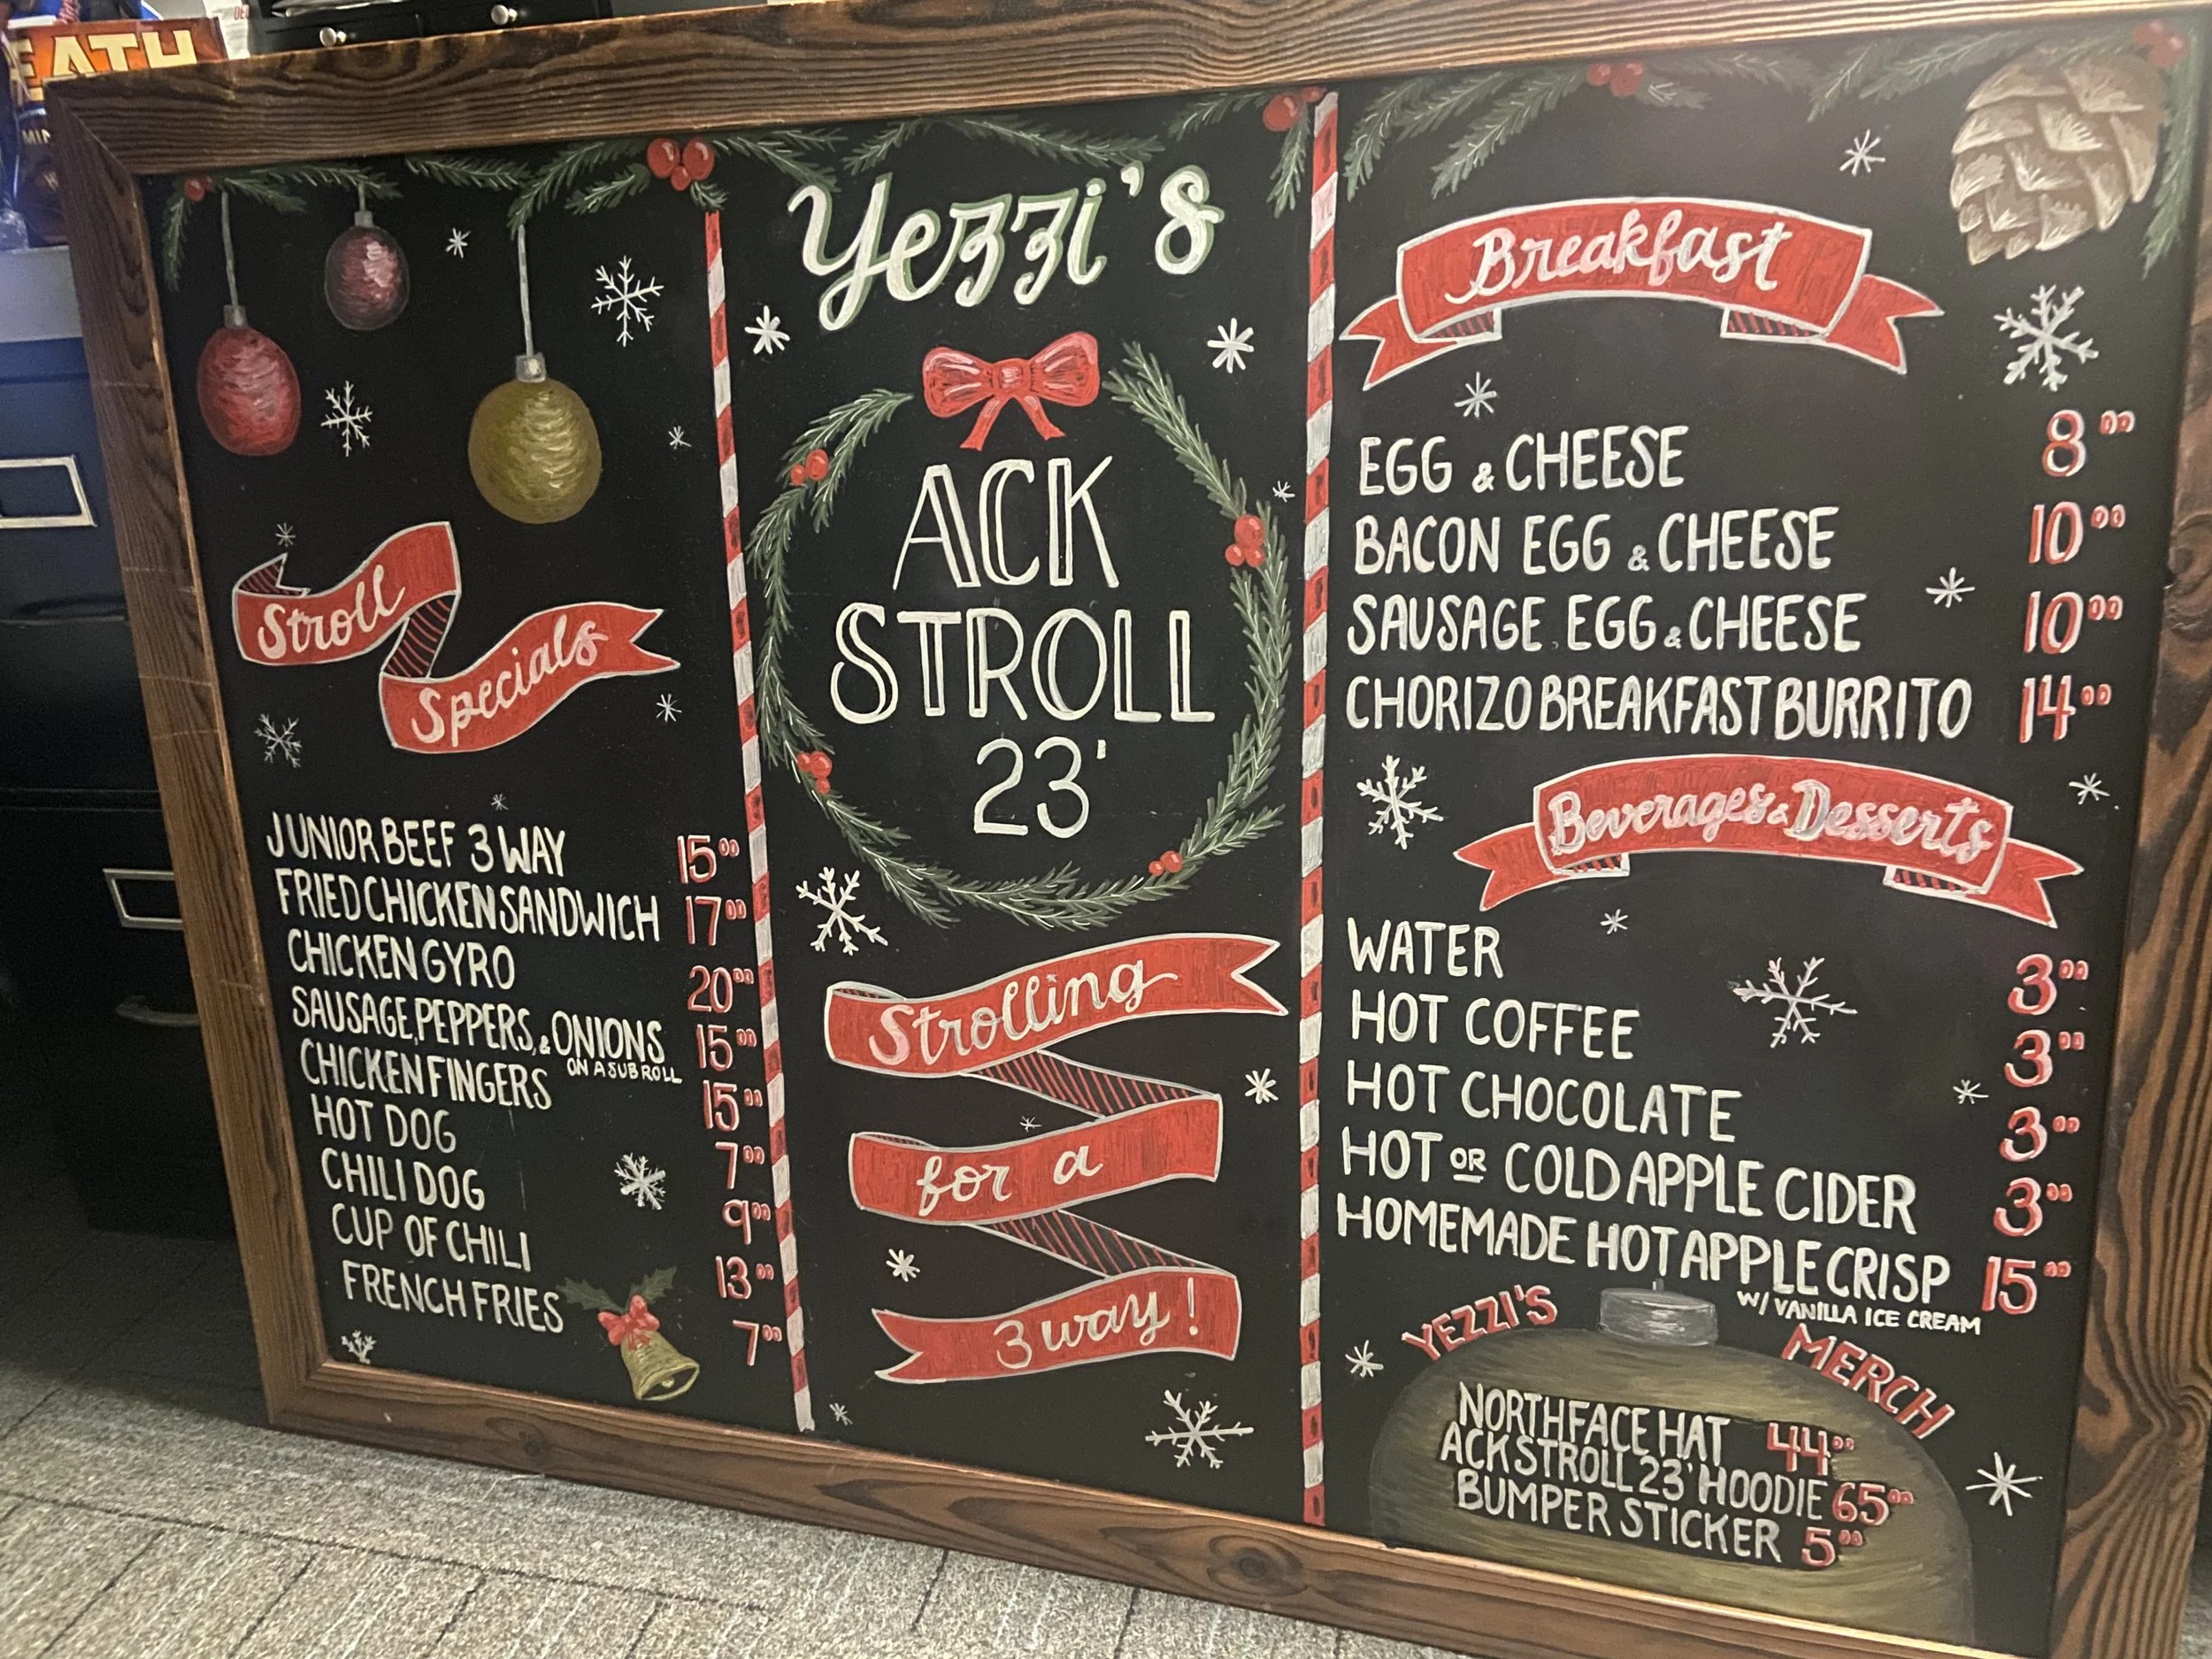 EATH
MIN
Yezzi's
ACK
STROLL
23'
Strolling
for a
3 way!
Stroll
Specials
JUNIOR BEEF 3 WAY 15⁰⁰
FRIED CHICKEN SANDWICH 17⁰⁰
CHICKEN GYRO 20⁰⁰
SAUSAGE, PEPPERS, & ONIONS 15⁰⁰
ON A SUB ROLL
CHICKEN FINGERS 15⁰⁰
HOT DOG 7⁰⁰
CHILI DOG 9⁰⁰
CUP OF CHILI 13⁰⁰
FRENCH FRIES 7⁰⁰
Breakfast
EGG & CHEESE 8⁰⁰
BACON EGG & CHEESE 10⁰⁰
SAUSAGE EGG & CHEESE 10⁰⁰
CHORIZO BREAKFAST BURRITO 14⁰⁰
Beverages & Desserts
WATER 3⁰⁰
HOT COFFEE 3⁰⁰
HOT CHOCOLATE 3⁰⁰
HOT OR COLD APPLE CIDER 3⁰⁰
HOMEMADE HOT APPLE CRISP 15⁰⁰
W/ VANILLA ICE CREAM
YEZZI'S MERCH
NORTHFACE HAT 44⁰⁰
ACK STROLL 23' HOODIE 65⁰⁰
BUMPER STICKER 5⁰⁰